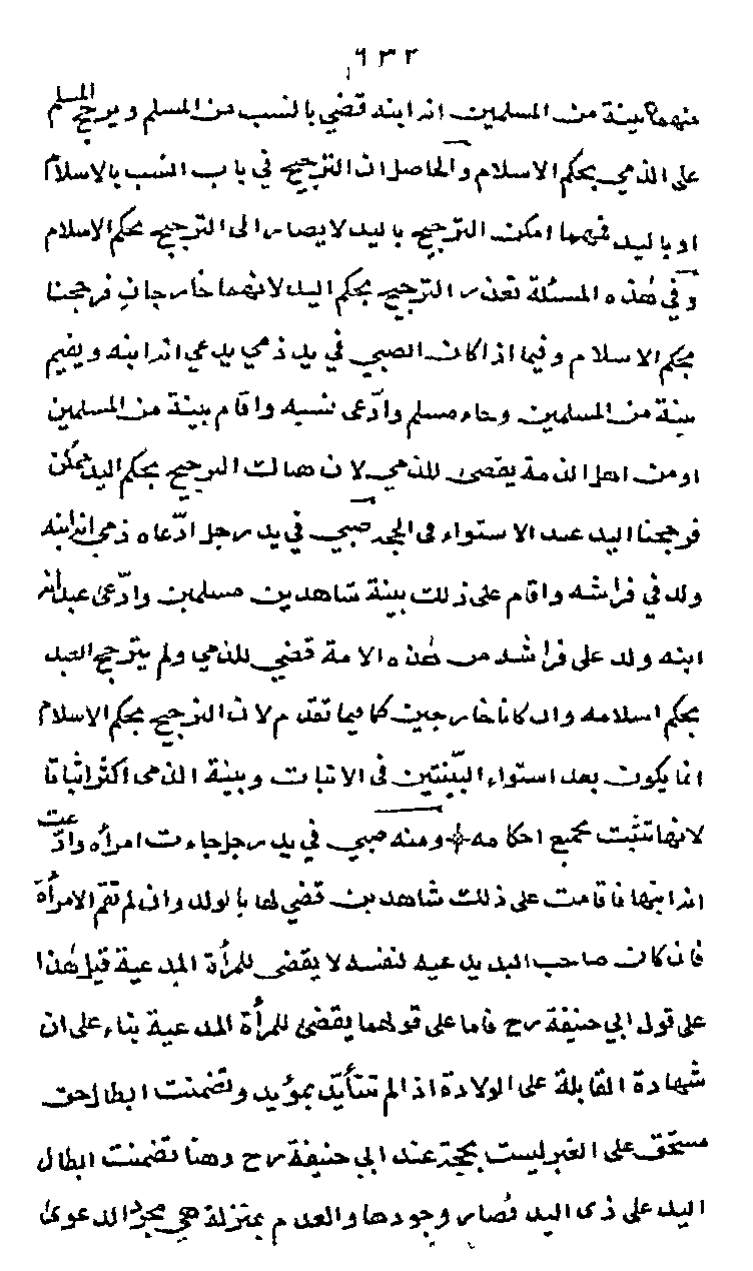 ٦٣٢
منهما بينة من المسلمين انه ابنه قضي بالنسب من المسلم و يرجح المسلم
على الذمي بحكم الاسلام والحاصل ان الترجيح في باب النسب بالاسلام
او باليد فمهما امكن الترجيح باليد لا يصار الى الترجيح بحكم الاسلام
وفي هذه المسئلة تعذر الترجيح بحكم اليد لانهما خارجان فرجحنا
بحكم الاسلام وفيما اذا كان الصبي في يد ذمي يدعي انه ابنه ويقيم
بينة من المسلمين وجاء مسلم وادّعى نسبه واقام بينة من المسلمين
او من اهل الذمة يقضى للذمي لان هناك الترجيح بحكم اليد ممكن
فرجحنا اليد عند الاستواء في الحجة صبي في يد رجل ادّعاه ذمي انه ابنه
ولد في فراشه واقام على ذلك بينة شاهدين مسلمين وادّعى عبد انه
ابنه ولد على فراشه من هذه الامة قضي للذمي ولم يترجح العبد
بحكم اسلامه وان كانا خارجين كما فيما تقدم لان الترجيح بحكم الاسلام
انما يكون بعد استواء البيّنتين في الاثبات وبينة الذمي اكثر اثباتا
لانها تثبت بجميع احكامه ومنه صبي في يد رجل جاءت امرأه وادّعت
انه ابنها فاقامت على ذلك شاهدين قضي لها بالولد وان لم تقم الامرأة
فان كان صاحب اليد يدعيه لنفسه لا يقضى للمرأة المدعية قيل هذا
على قول ابي حنيفة رح فاما على قولهما يقضى للمرأة المدعية بناء على ان
شهادة القابلة على الولادة اذا لم تتأيّد بمؤيد وتضمنت ابطال حق
مستحق على الغير ليست بحجة عند ابي حنيفة رح وهنا تضمنت ابطال
اليد على ذى اليد فصار وجودها والعدم بمنزلة هي مجرد الدعوى